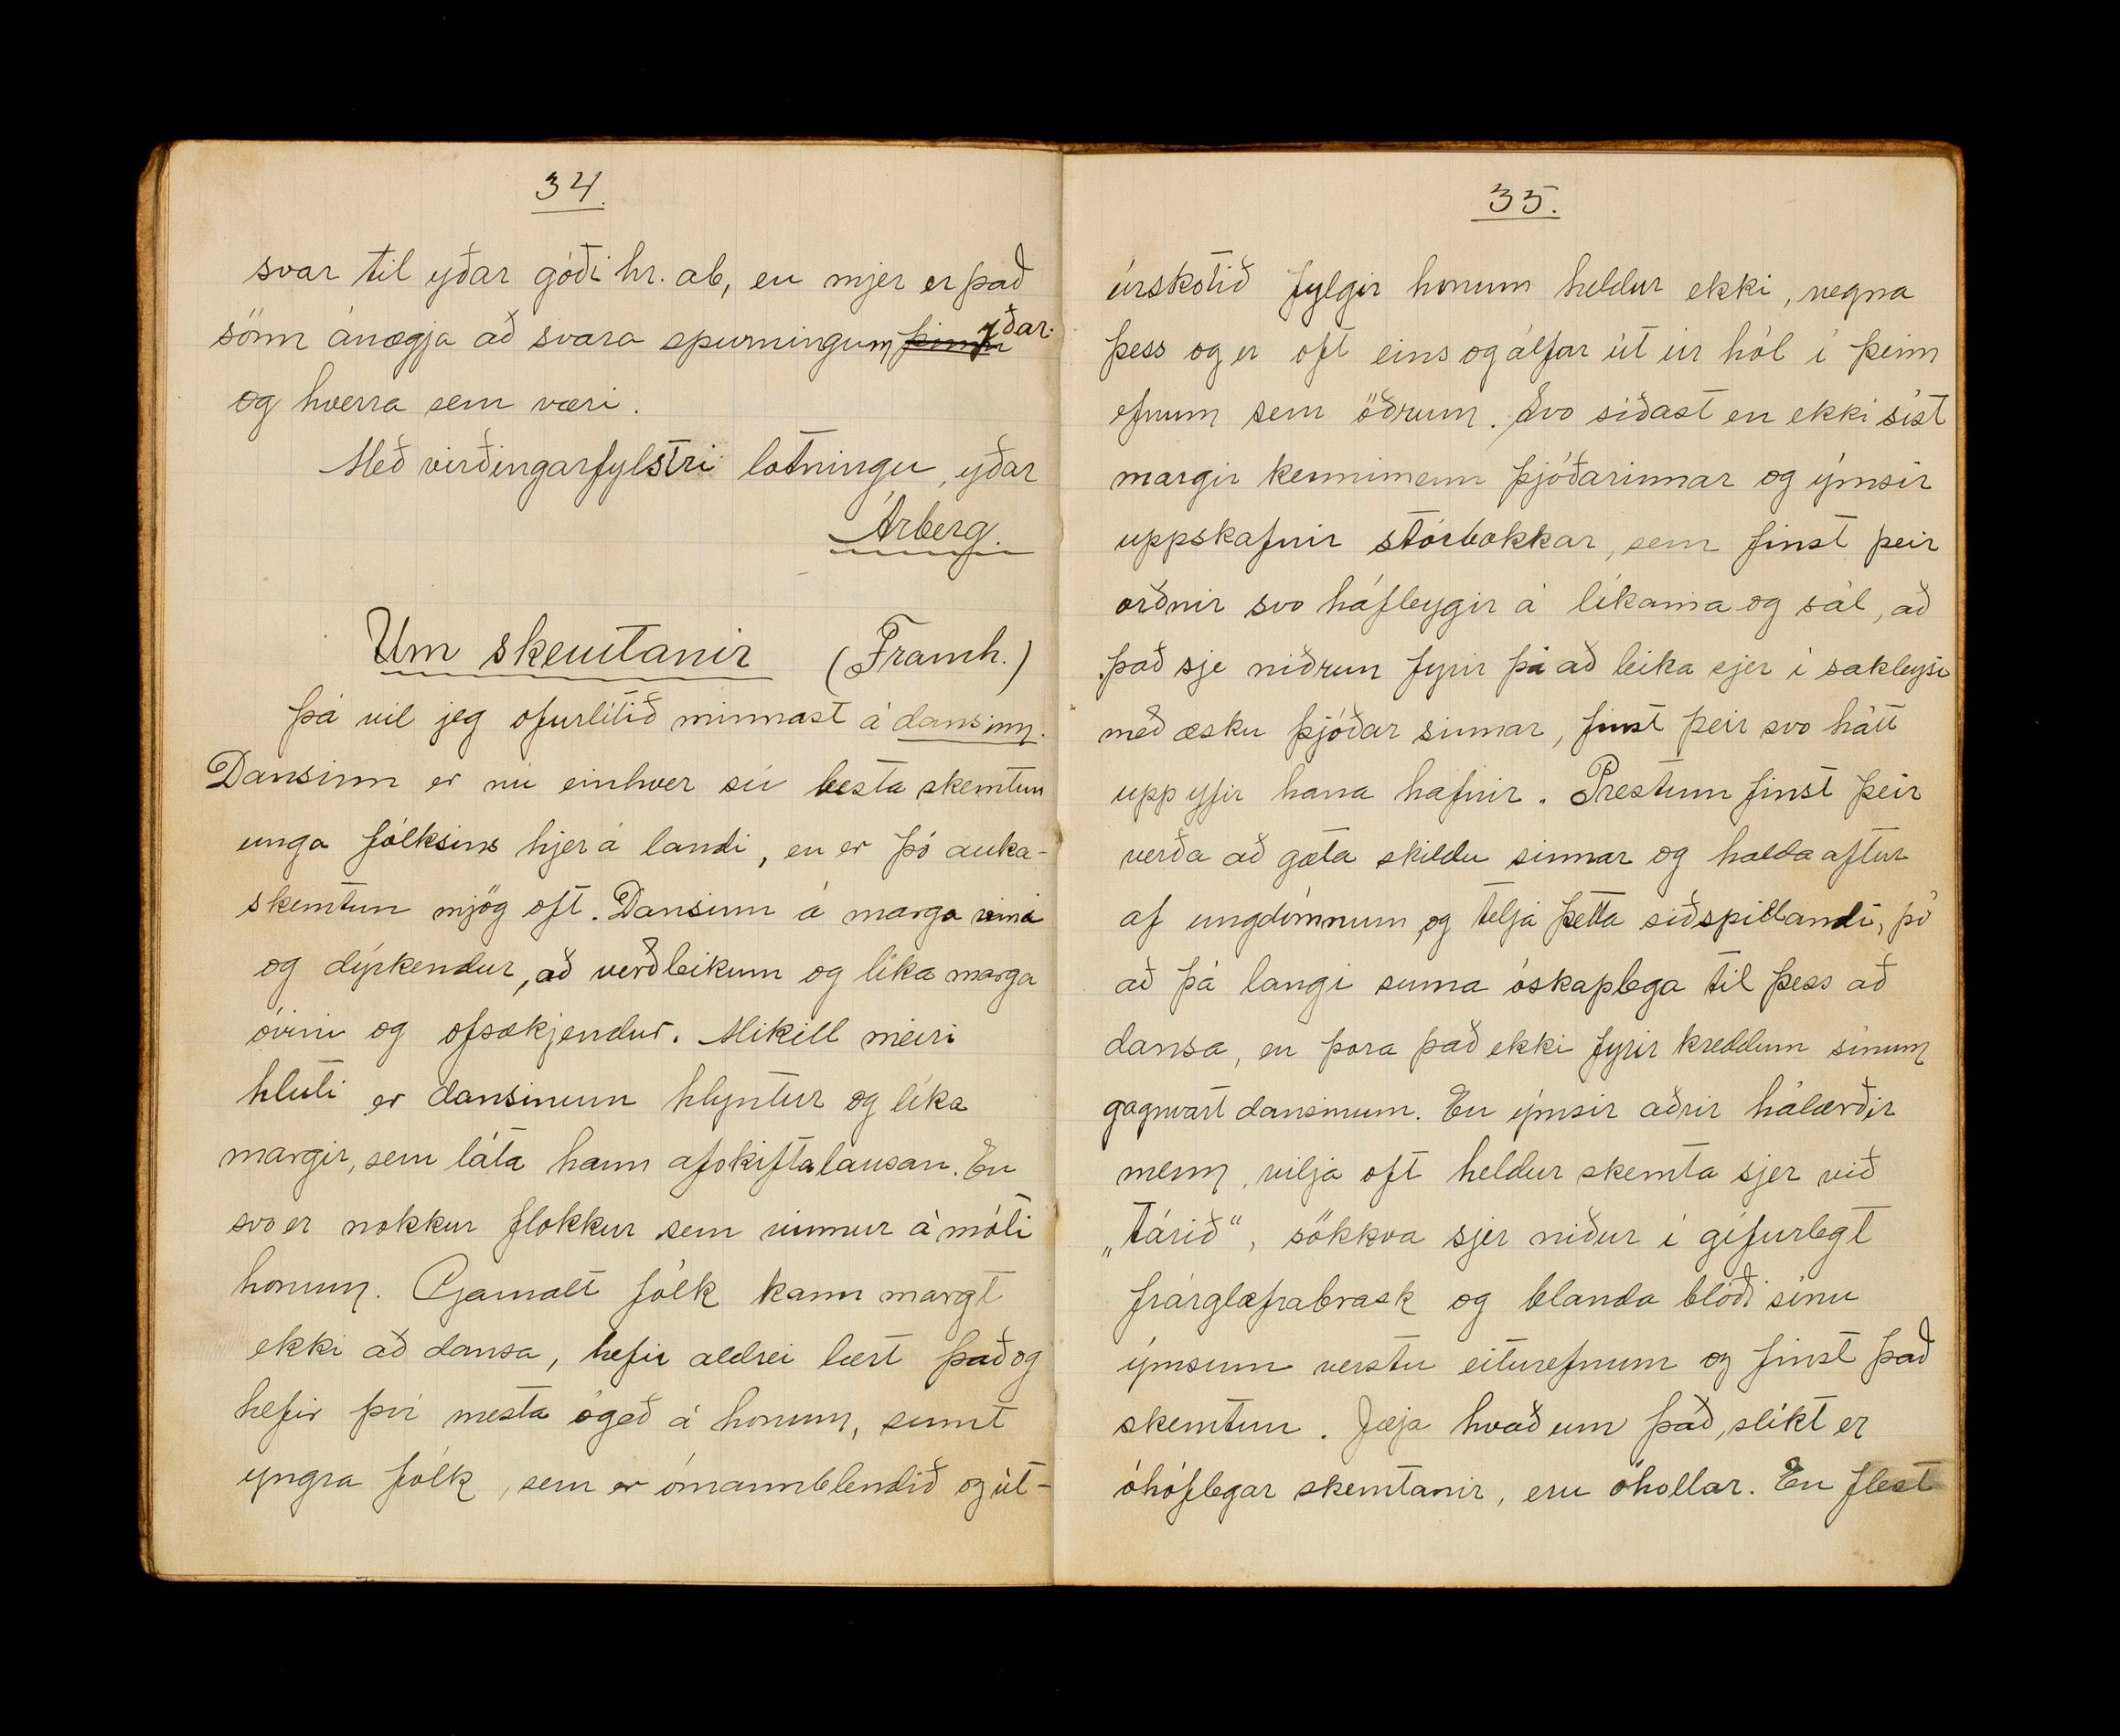 34.
svar til yðar góði hr. ab, en mjer er það
sönn ánægja að svara spurningum yðar.
og hverra sem væri.
Með virðingarfylstri lotningu, yðar
Árberg.
Um skemtanir (Framh.)
Þá vil jeg ofurlítið minnast á dansinn.
Dansinn er nú einhver sú besta skemtun
unga fólksins hjer á landi, en er þó auka-
skemtun mjög oft. Dansinn á marga vini
og dýrkendur, að verðleikum og líka marga
óvini og ofsækjendur. Mikill meiri
hluti er dansinum hlyntur og líka
margir, sem láta hann afskiftalausan. En
svo er nokkur flokkur sem vinnur á móti
honum. Gamalt fólk kann margt
ekki að dansa, hefir aldrei lært það og
hefir því mesta ógeð á honum, sumt
yngra fólk, sem er ómannblendið og út-
35.
úrskotið fylgir honum heldur ekki, vegna
þess og er oft eins og álfar út úr hól í þeim
efnum sem öðrum. Svo síðast en ekki síst
margir kennimenn þjóðarinnar og ýmsir
uppskafnir stórbokkar, sem finst þeir
orðnir svo háfleygir á líkama og sál, að
það sje niðrun fyrir þá að leika sjer í sakleysi
með æsku þjóðar sinnar, finst þeir svo hátt
upp yfir hana hafnir. Prestum finst þeir
verða að gæta skildu sinnar og halda aftur
af ungdómnum og telja þetta siðspillandi, þó
að þá langi suma óskaplega til þess að
dansa, en þora það ekki fyrir kreddum sínum
gagnvart dansinum. En ýmsir aðrir hálærðir
menn, vilja oft heldur skemta sjer við
„tárið“, sökkva sjer niður í gífurlegt
fjárglæfrabrask og blanda blóði sínu
ýmsum verstu eiturefnum og finst það
skemtun. Jæja hvað um það, slíkt er
óhóflegar skemtanir, eru óhollar. En flest